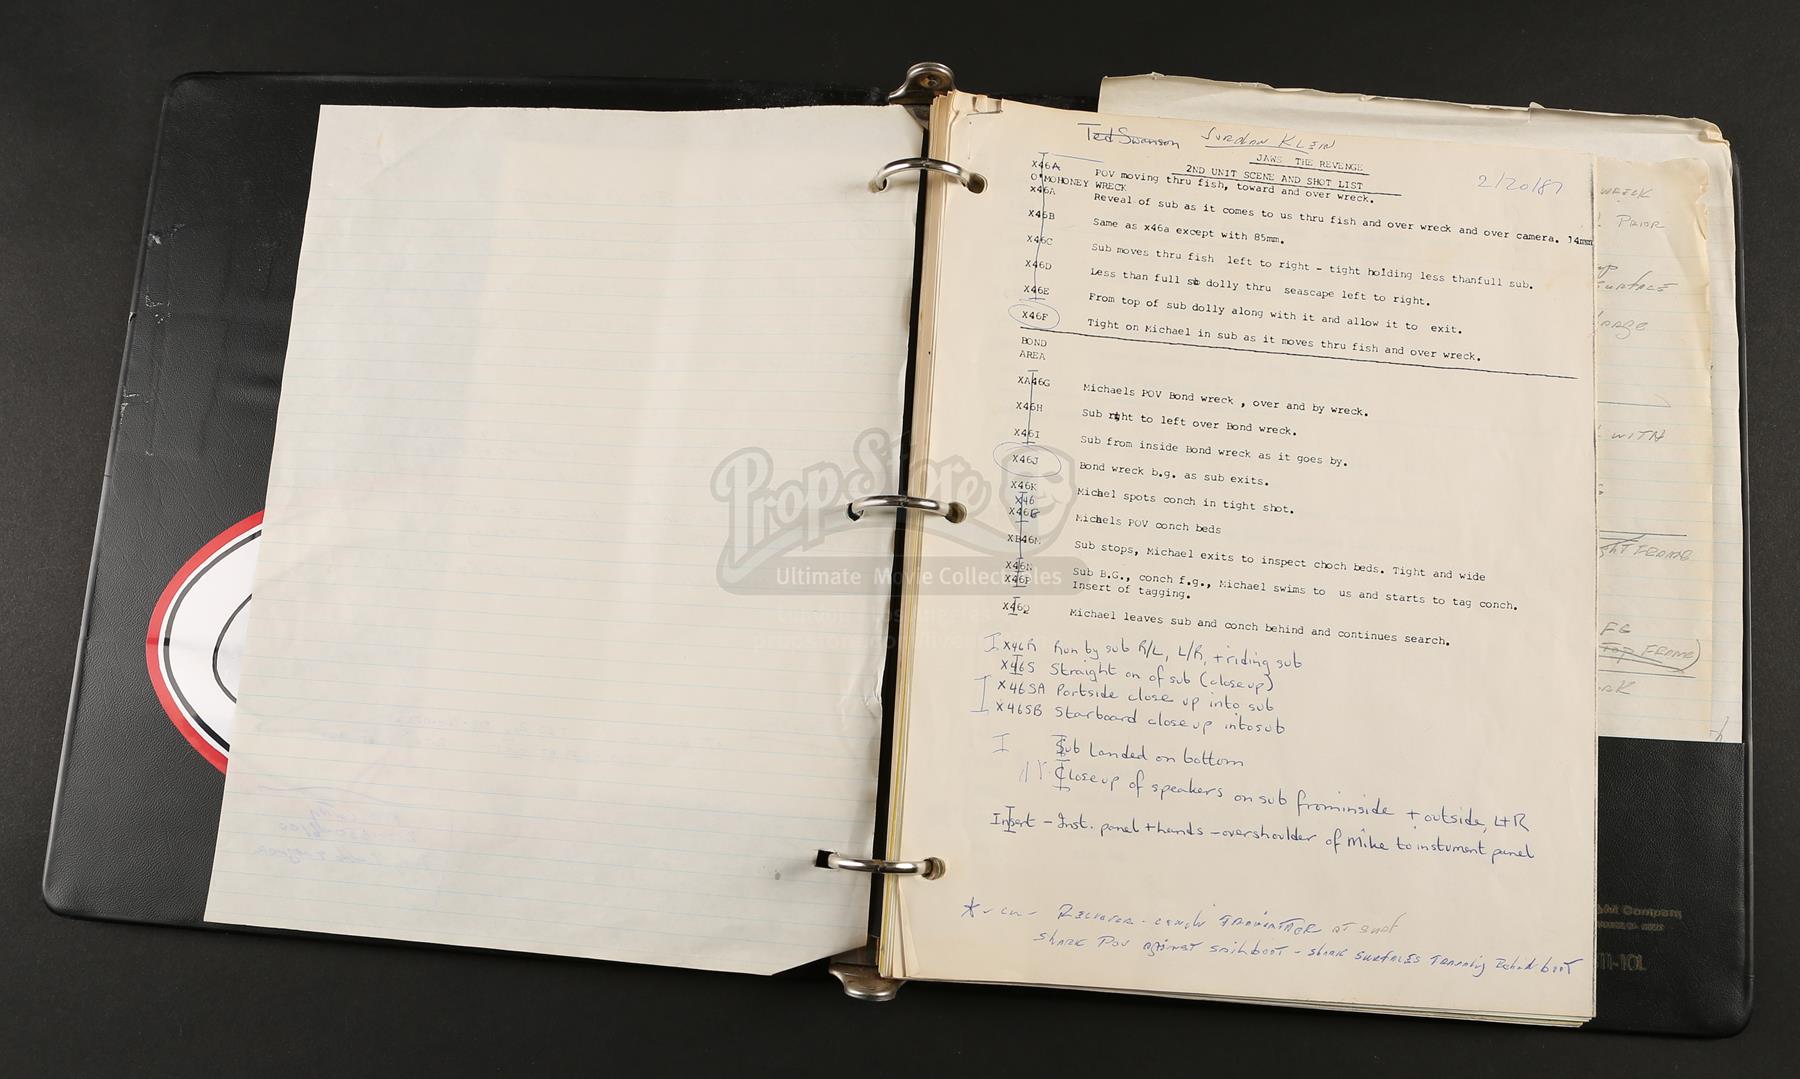 Ted Swanson Jordan Klein
JAWS THE REVENGE
2ND UNIT SCENE AND SHOT LIST
2/20/87
X46A POV moving thru fish, toward and over wreck.
O'MOHONEY WRECK
x46A Reveal of sub as it comes to us thru fish and over wreck and over camera. 14mm
X46B Same as x46a except with 85mm.
X46C Sub moves thru fish left to right - tight holding less thanfull sub.
X46D Less than full sub dolly thru seascape left to right.
X46E From top of sub dolly along with it and allow it to exit.
X46F Tight on Michael in sub as it moves thru fish and over wreck.
BOND
AREA
XA46G Michaels POV Bond wreck , over and by wreck.
X46H Sub right to left over Bond wreck.
X46I Sub from inside Bond wreck as it goes by.
X46J Bond wreck b.g. as sub exits.
X46K Michael spots conch in tight shot.
X46
X46 Michaels POV conch beds
XB46M Sub stops, Michael exits to inspect choch beds. Tight and wide
X46N Sub B.G., conch f.g., Michael swims to us and starts to tag conch.
X46P Insert of tagging.
X46Q Michael leaves sub and conch behind and continues search.
X46R Run by sub R/L, L/R, + riding sub
X46S Straight on of sub (close up)
X46SA Portside close up into sub
X46SB Starboard close up into sub
Sub Landed on bottom
Close up of speakers on sub from inside + outside, L+R
Insert - Inst. panel + hands - over shoulder of Mike to instument panel
Shark POV against sailboat - shark surfaces Behind boat
WRECK
PRIOR
SURFACE
WITH
FRAME
FG
TOP FRAME)
PropStore
Ultimate Movie Collectables
Company
11-10L